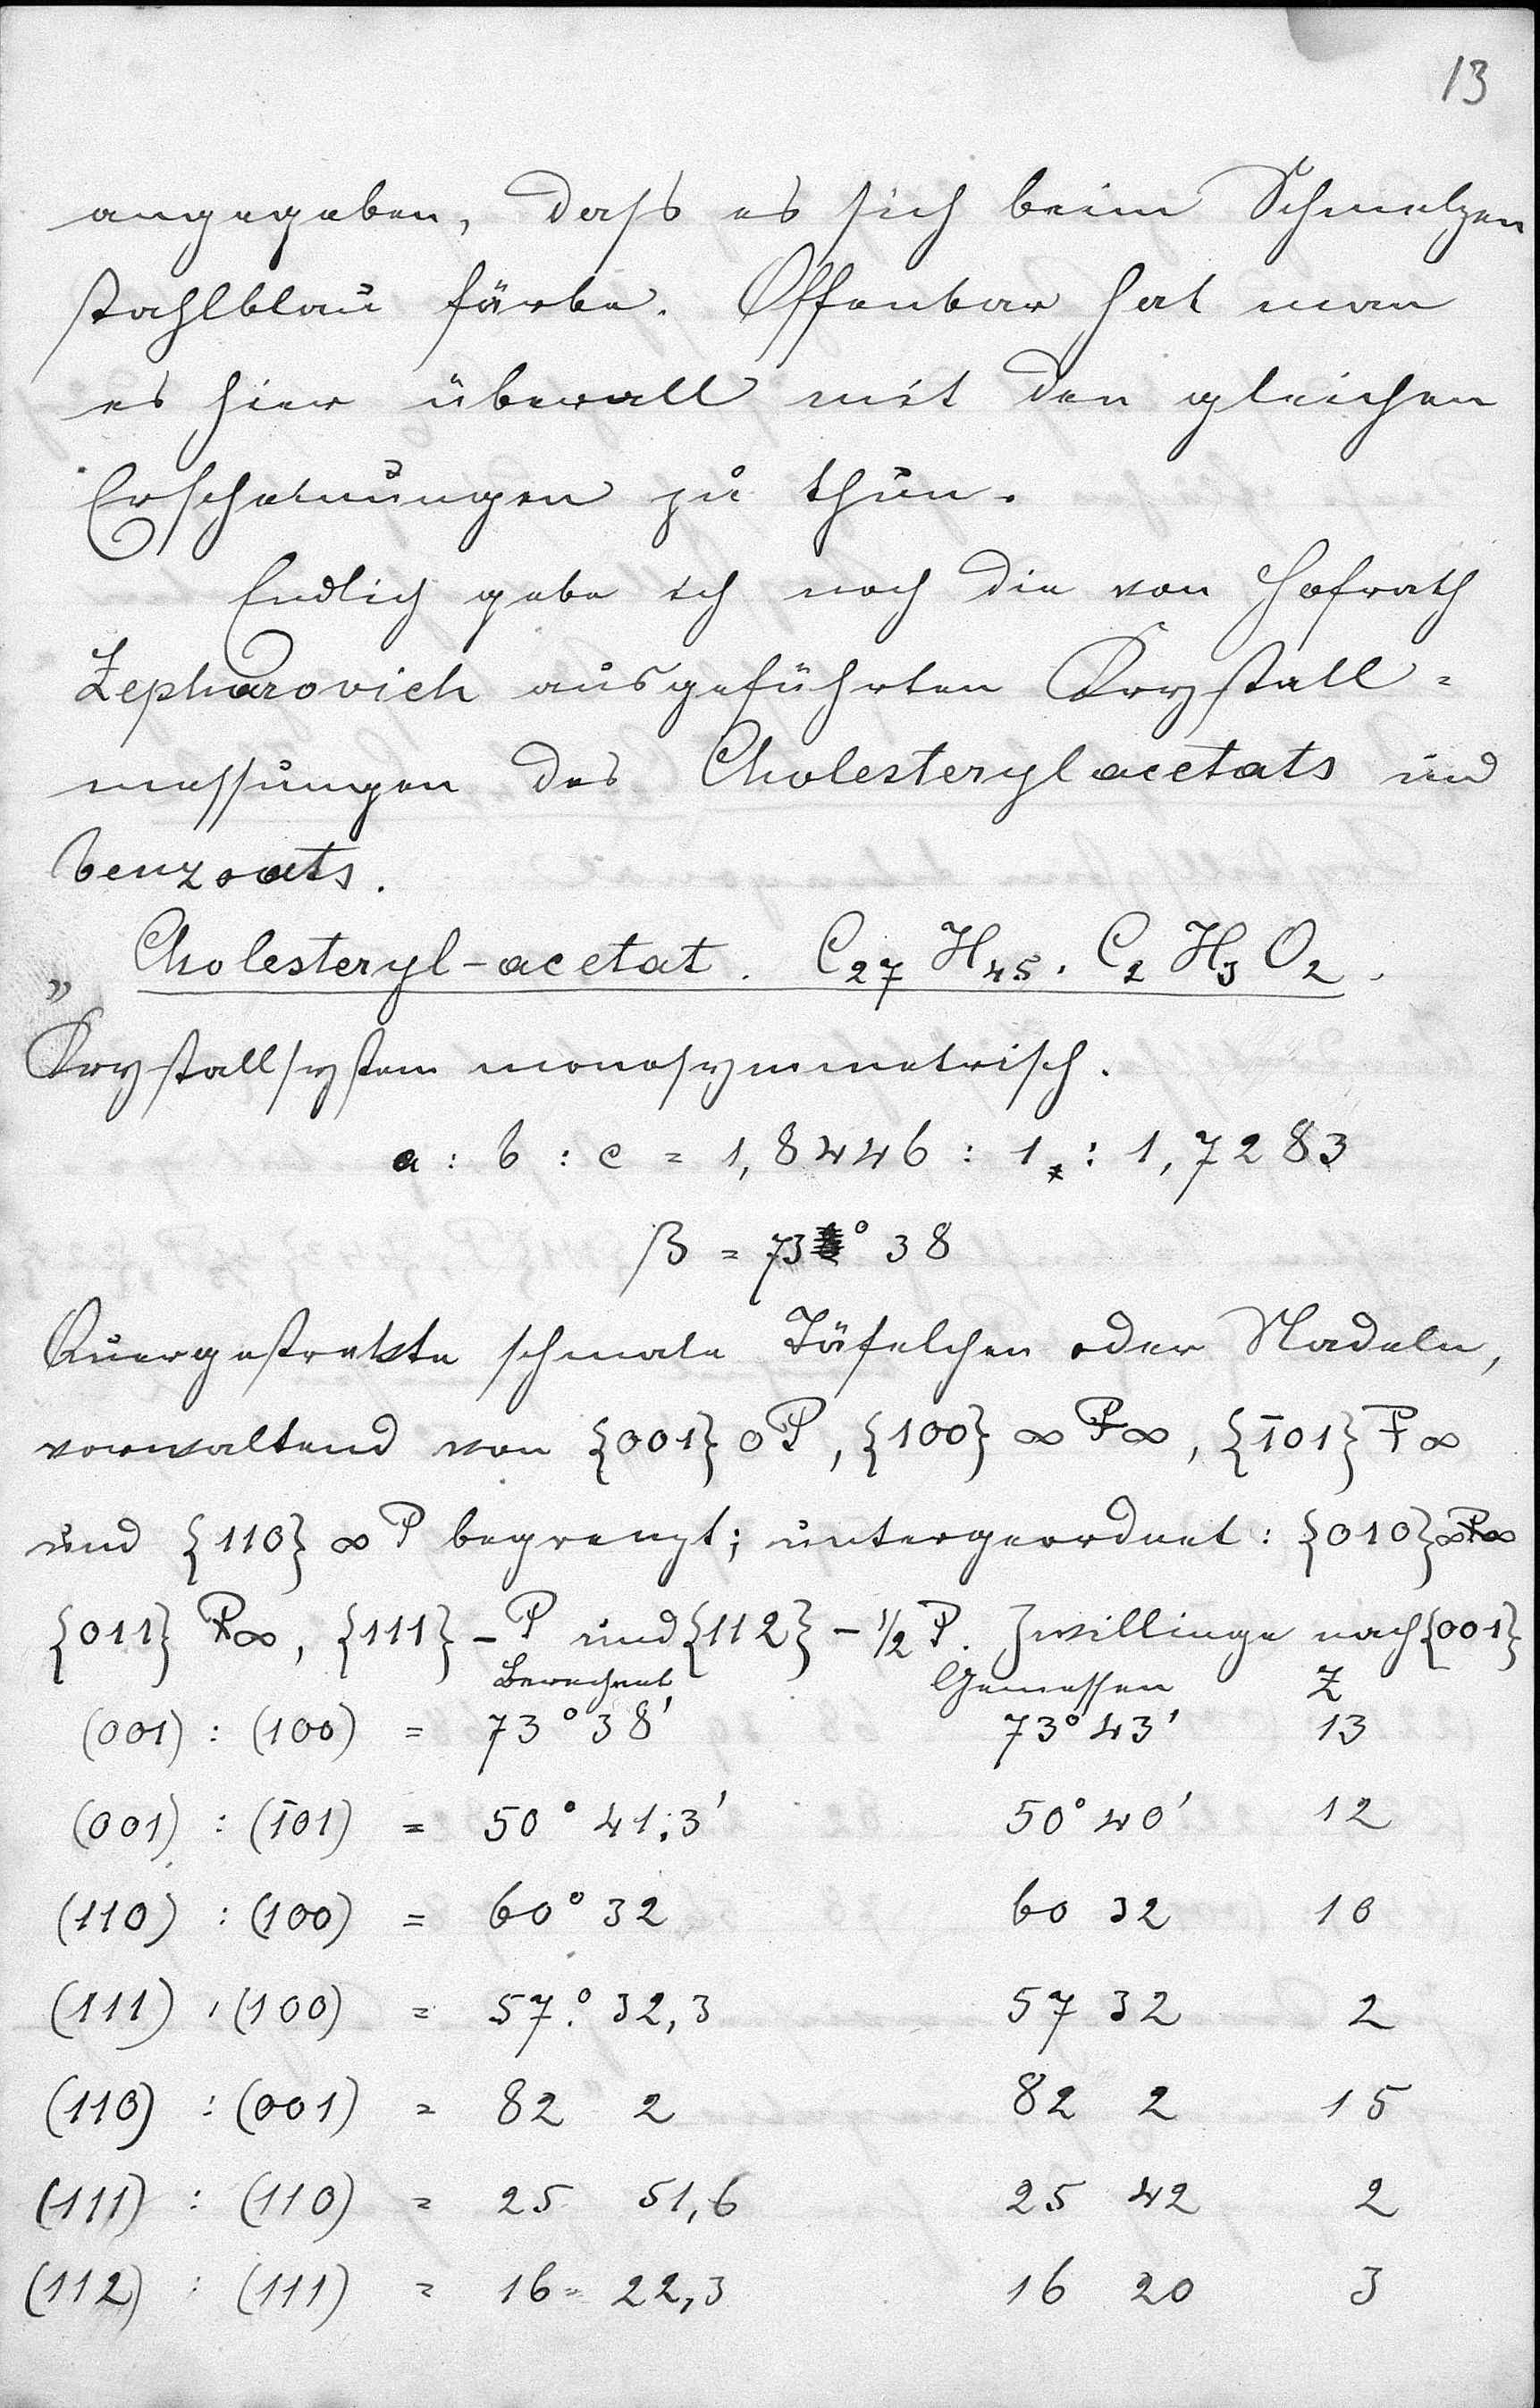 13
angegeben, dass es sich beim Schmelzen
stahlblau färbe. Offenbar hat man
es hier überall mit den gleichen
Erscheinungen zu thun.
Endlich gebe ich noch die von Hofrath
Zepharovich ausgeführten Krystall=
messungen des Cholesterylacetats und
benzoats.
„ Cholesteryl-acetat. C27 H45. C2 H3 O2.
Krystallsystem monosymmetrisch.
a : b : c = 1,8446 : 1 : 1,7283
β = 73° 38
Quergestreckte schmale Täfelchen oder Nadeln,
vorwaltend von {001} 0P, {100} ∞P̶∞, {1̄01} P̶∞
und {110} ∞P begrenzt; untergeordnet: {010} ∞P̶∞
{011} P̶∞, {111} -P und {112} - 1/2 P. Zwillinge nach {001}
Berechnet Gemessen Z
(001) : (100) = 73° 38' 73° 43' 13
(001) : (1̄01) = 50° 41.3' 50° 40' 12
(110) : (100) = 60° 32 60 32 10
(111) : (100) = 57.° 32,3 57 32 2
(110) : (001) = 82 2 82 2 15
(111) : (110) = 25 51,6 25 42 2
(112) : (111) = 16 22,3 16 20 3